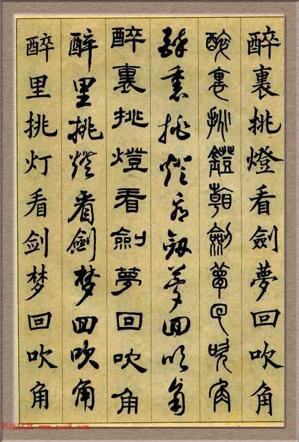 醉裏挑燈看劍夢回吹角
醉裏挑鐙看劍夢回吹角
醉裏挑燈看劍夢回吹角
醉裏挑燈看劍夢回吹角
醉里挑燈看劍梦回吹角
醉里挑灯看剑梦回吹角